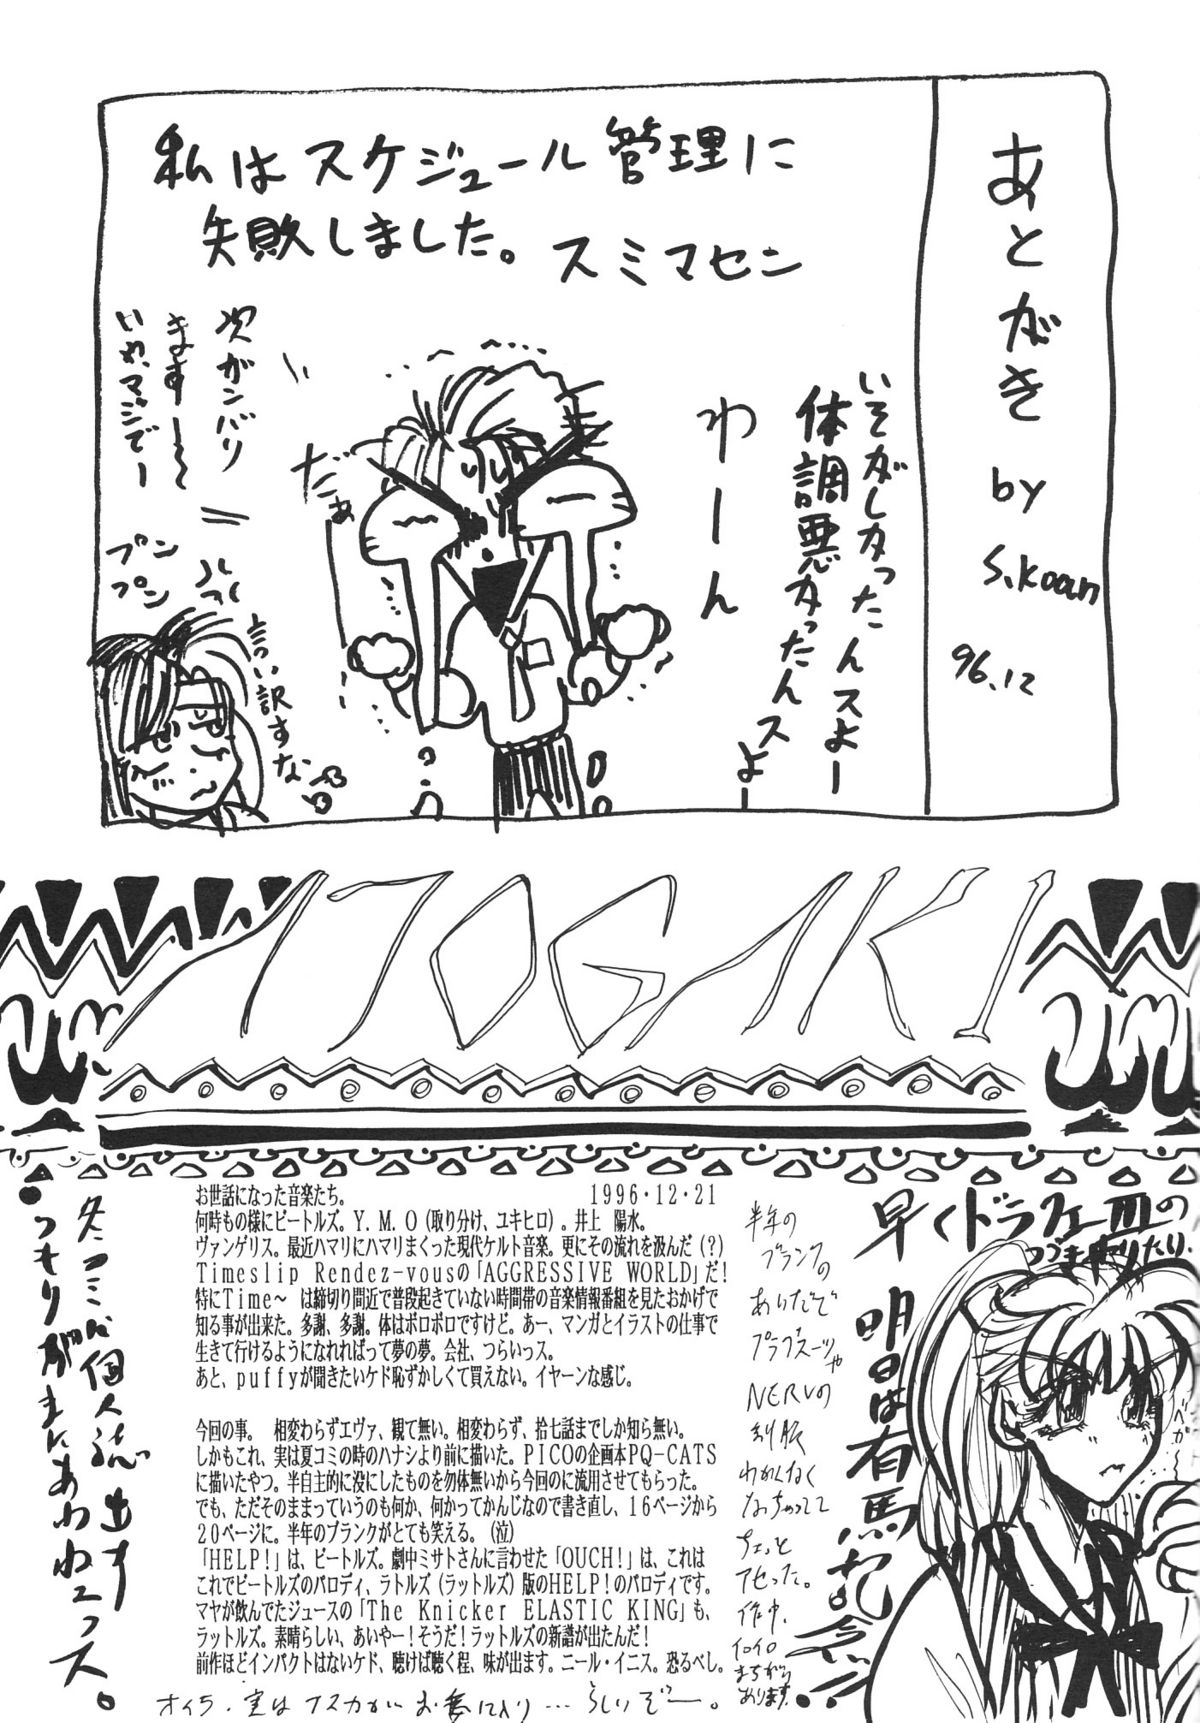 あとがき by S.Koan 96.12
私はスケジュール管理に
失敗しました。スミマセン
いそがしかったんスよー
体調悪かったんスよー
わーん
だぁ
次ガンバり
ます〜
いや、マジでー
プン
プン
言い訳すな
ATOGAKI
お世話になった音楽たち。 1996・12・21
何時もの様にビートルズ。Y.M.O(取り分け、ユキヒロ)。井上 陽水。
ヴァンゲリス。最近ハマりにハマりまくった現代ケルト音楽。更にその流れを汲んだ(?)
Timeslip Rendez-vousの「AGGRESSIVE WORLD」だ!
特にTime〜 は締切り間近で普段起きていない時間帯の音楽情報番組を見たおかげで
知る事が出来た。多謝、多謝。体はボロボロですけど。あー、マンガとイラストの仕事で
生きて行けるようになれればって夢の夢。会社、つらいっス。
あと、puffyが聞きたいケド恥ずかしくて買えない。イヤーンな感じ。
今回の事。 相変わらずエヴァ、観て無い。相変わらず、拾七話までしか知ら無い。
しかもこれ、実は夏コミの時のハナシより前に描いた。PICOの企画本PQ-CATS
に描いたやつ。半自主的に没にしたものを勿体無いから今回のに流用させてもらった。
でも、ただそのままっていうのも何か、何かってかんじなので書き直し、16ページから
20ページに。半年のブランクがとても笑える。(泣)
「HELP!」は、ビートルズ。劇中ミサトさんに言わせた「OUCH!」は、これは
これでビートルズのパロディ、ラトルズ(ラットルズ)版のHELP!のパロディです。
マヤが飲んでたジュースの「The Knicker ELASTIC KING」も、
ラットルズ。素晴らしい、あいやー!そうだ!ラットルズの新譜が出たんだ!
前作ほどインパクトはないケド、聴けば聴く程、味が出ます。ニール・イニス。恐るべし。
オイラ、実はアスカがお気に入り…らしいぞー。
早くドラクエIIIの
つづきやりたり。
明日は有馬記念!!
半年の
ブランクの
あいだで
プラグスーツや
NERVの
制服
わかんなく
なっちゃってて
ちょっと
アセった。
作中、
イロイロ
まちがい
あります。
冬コミに個人誌出す
つもりがまにあわねェっス。